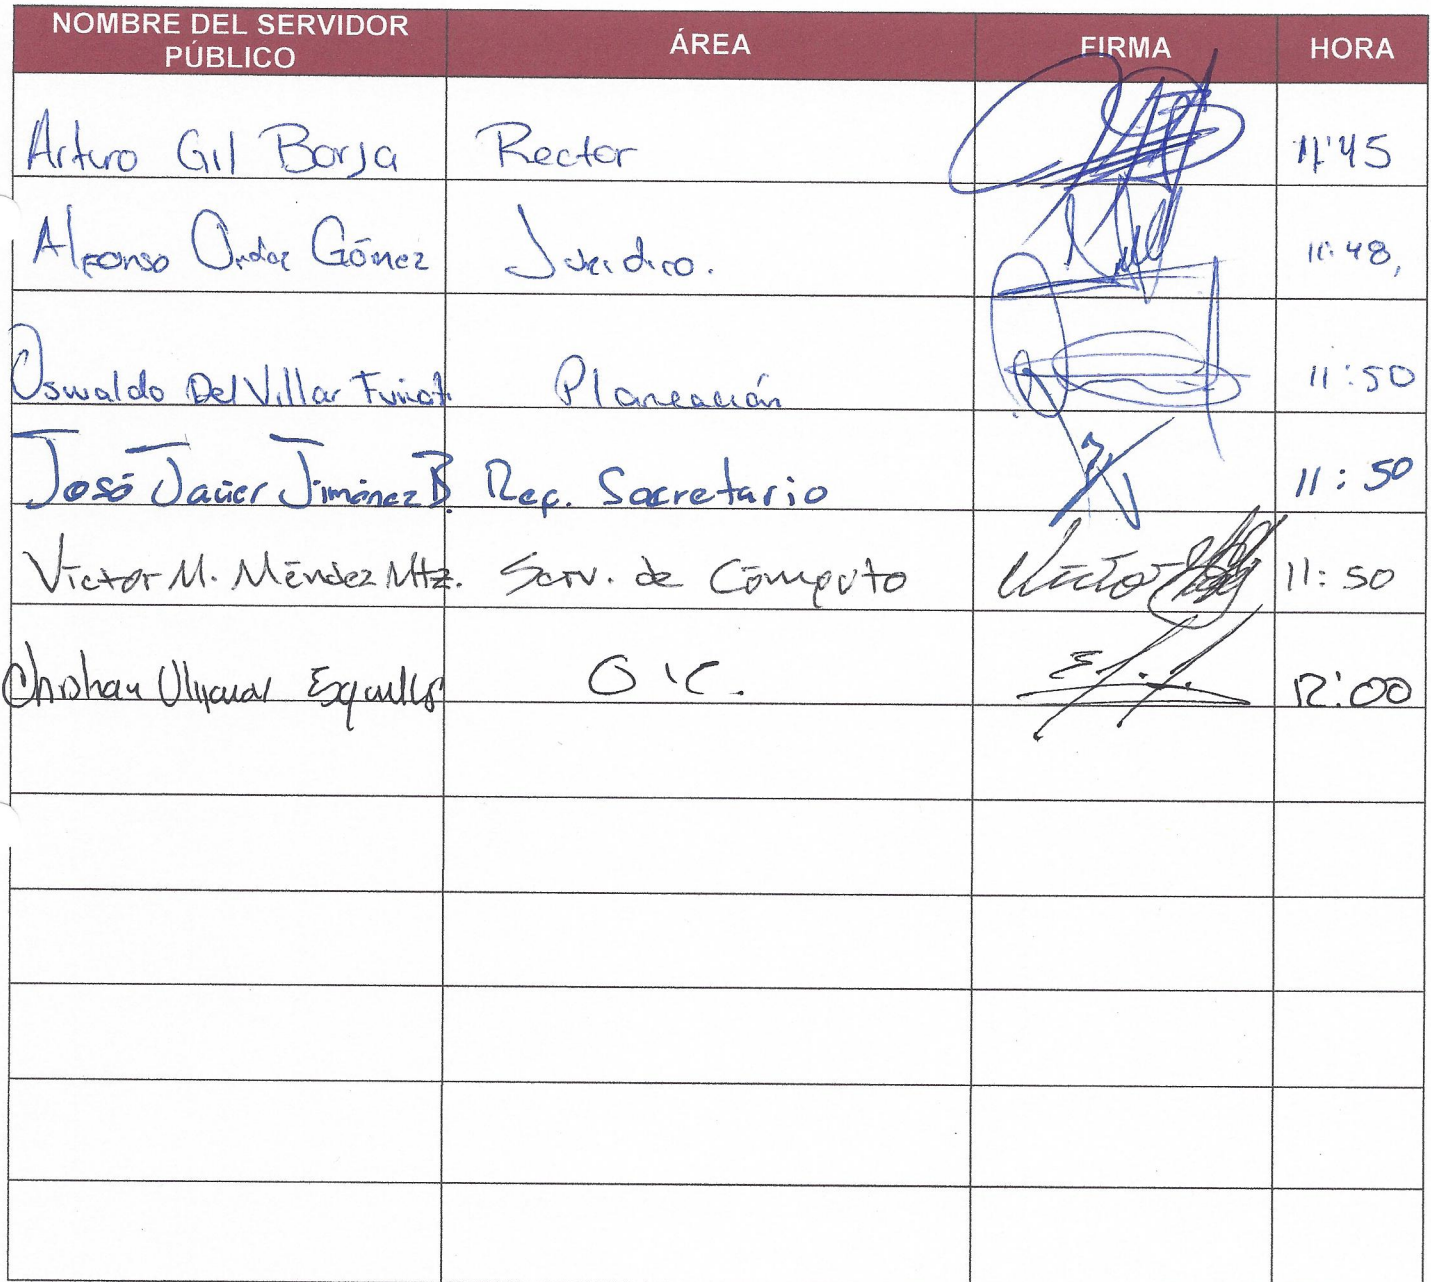 NOMBRE DEL SERVIDOR
PÚBLICO
ÁREA
FIRMA
HORA
Arturo Gil Borja Rector 11:45
Alfonso Gómez Jurídico. 11:48,
Oswaldo Del Villar Planeación 11:50
José Javier Jiménez B. Rep. Secretario 11:50
Víctor M. Méndez Mtz. Serv. de Cómputo Víctor 11:50
O.I.C. 12:00